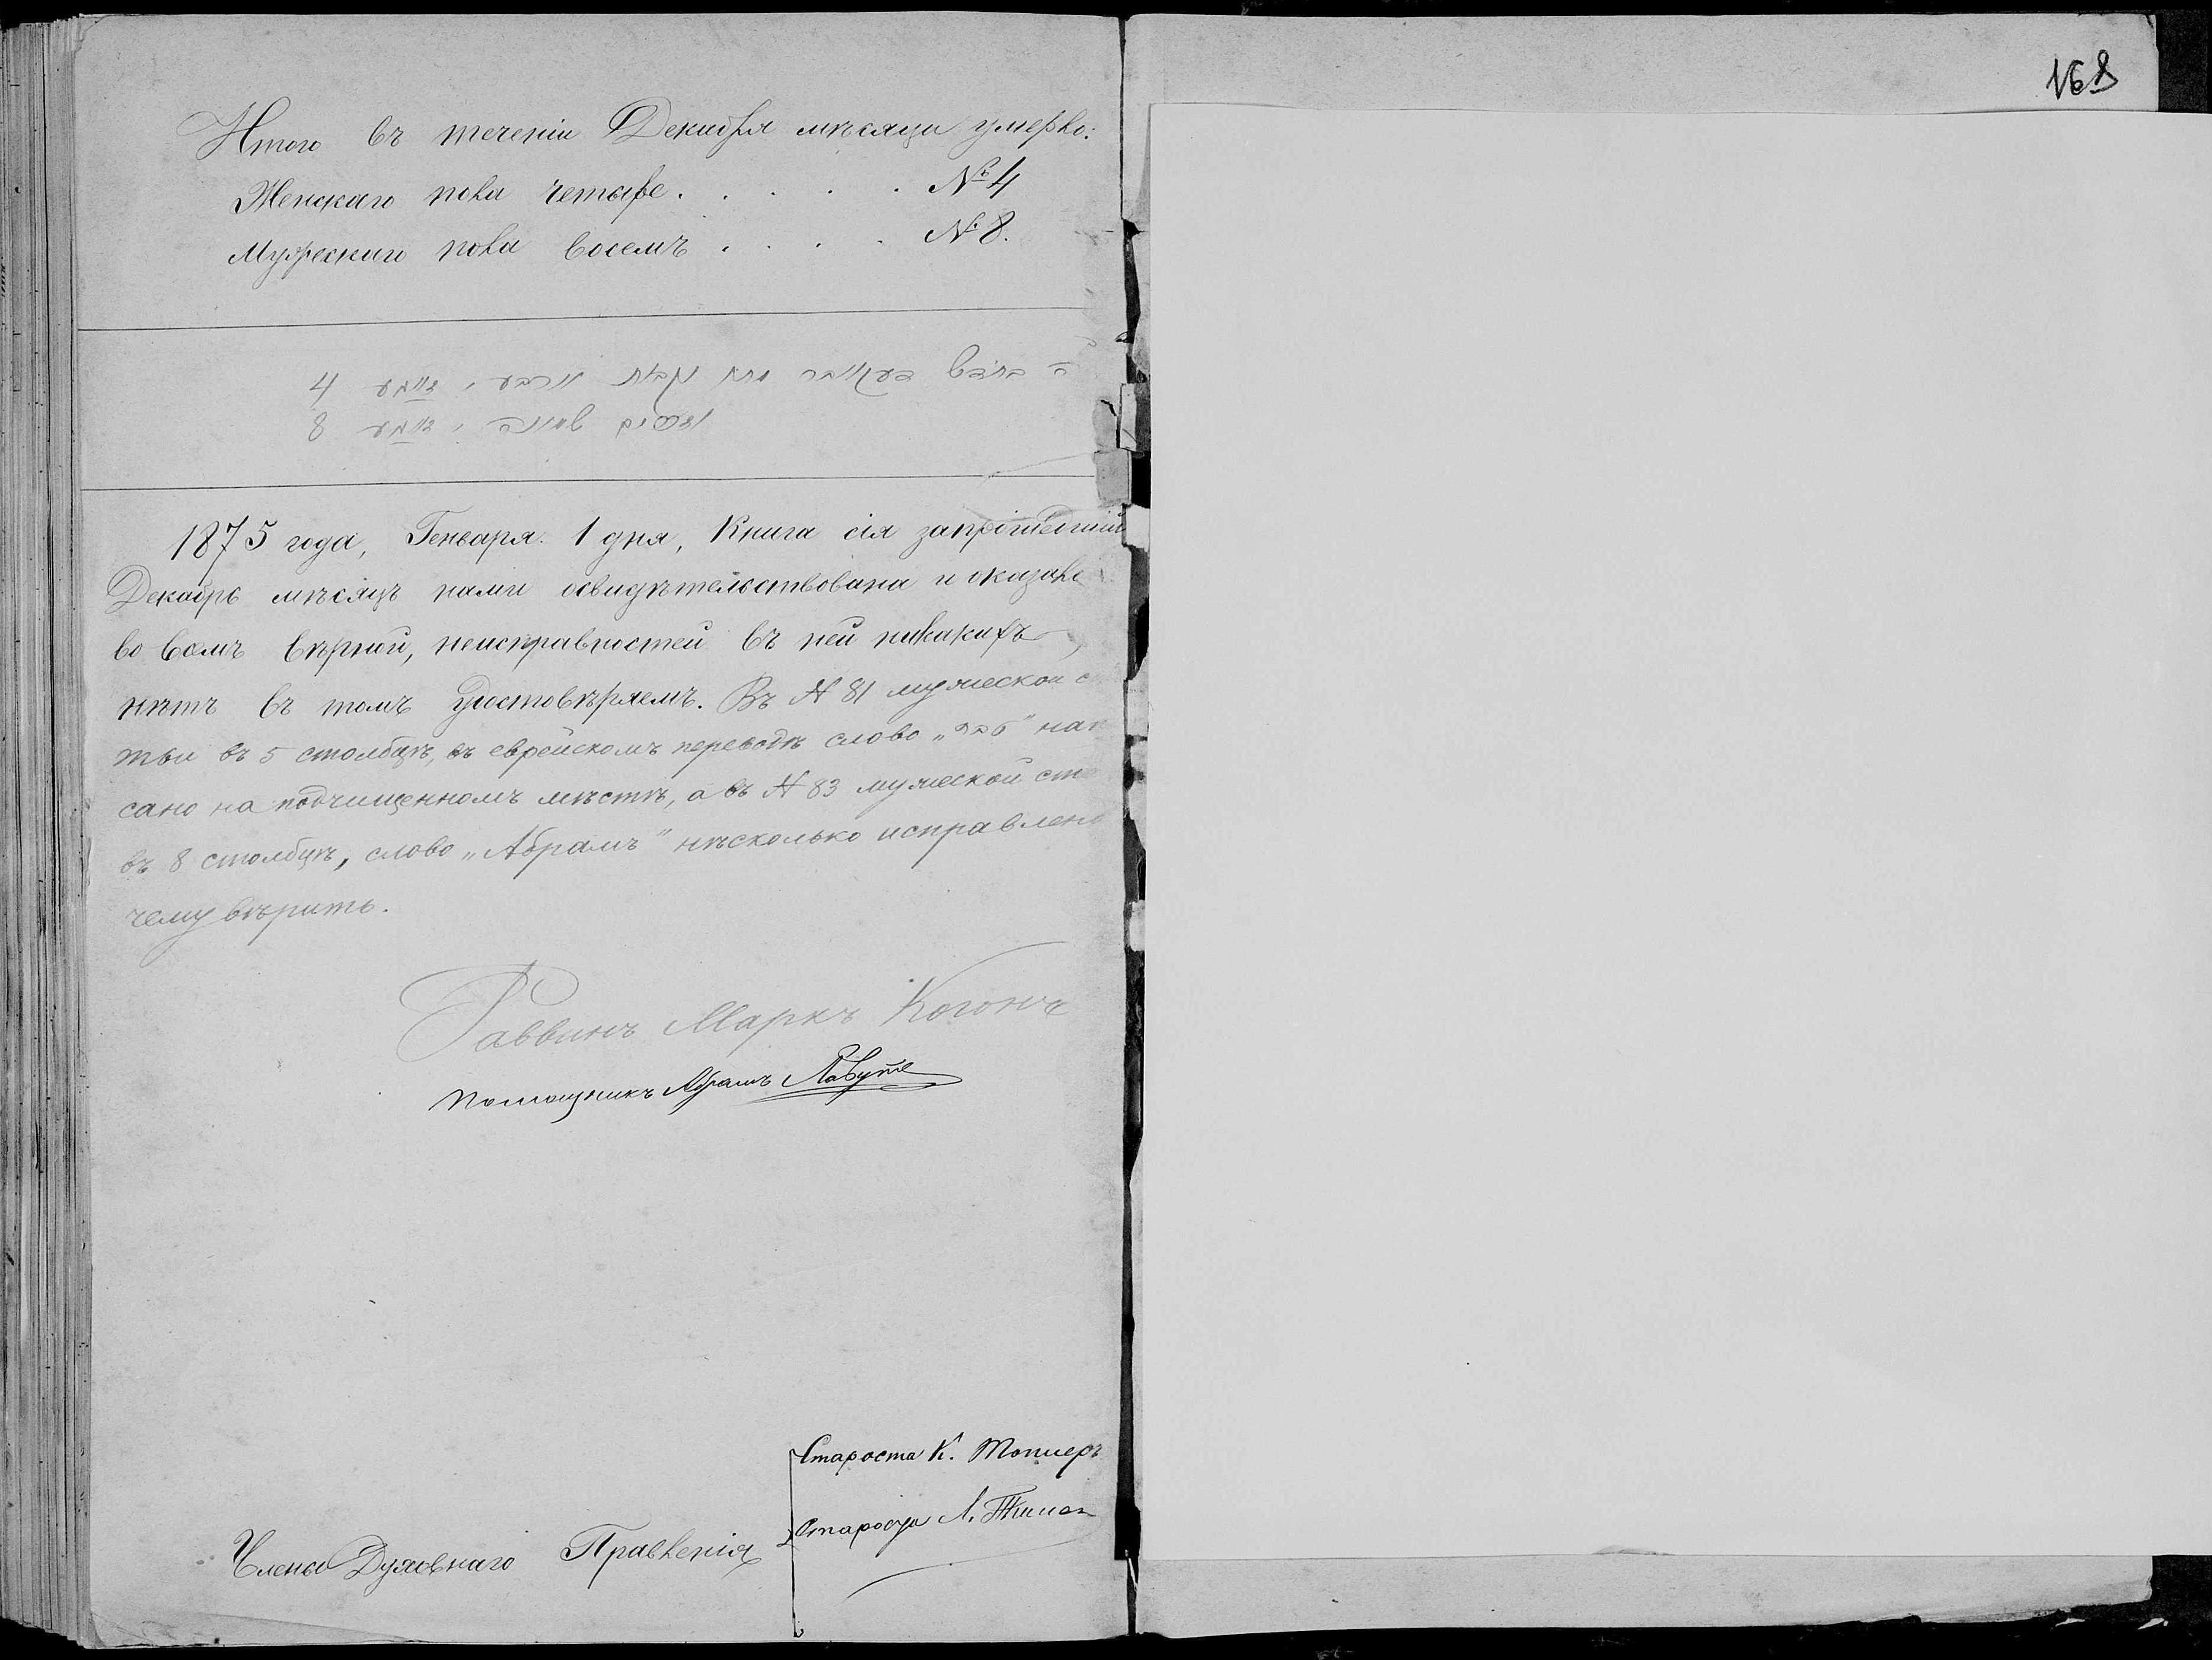 168
Итого въ теченіи Декабря мѣсяца умерло:
Женскаго пола четыре . . . . . № 4
Мужескаго пола восемъ . . . . № 8.
בחדש דעקאבר מתו נקבות ארבע 4
אנשים שמונה 8
1875 года, Генваря 1 дня, Книга сія запрошедшій
Декабрь мѣсяцъ нами освидѣтельствована и оказале
во всемъ вѣрной, неисправностей въ ней никакихъ
нѣтъ въ томъ удостовѣряемъ. Въ № 81 мужеской с
тьи въ 5 столбцѣ, въ еврейскомъ переводѣ слово нап
сано на подчищенномъ мѣстѣ, а въ № 83 мужеской ста
въ 8 столбцѣ, слово „Абрамъ" нѣсколько исправлено
чему вѣрить.
Раввинъ Маркъ Когонъ
Помощникъ Абрамъ
Староста К. Топиеръ
Староста Л.
Члены Духовнаго Правленія